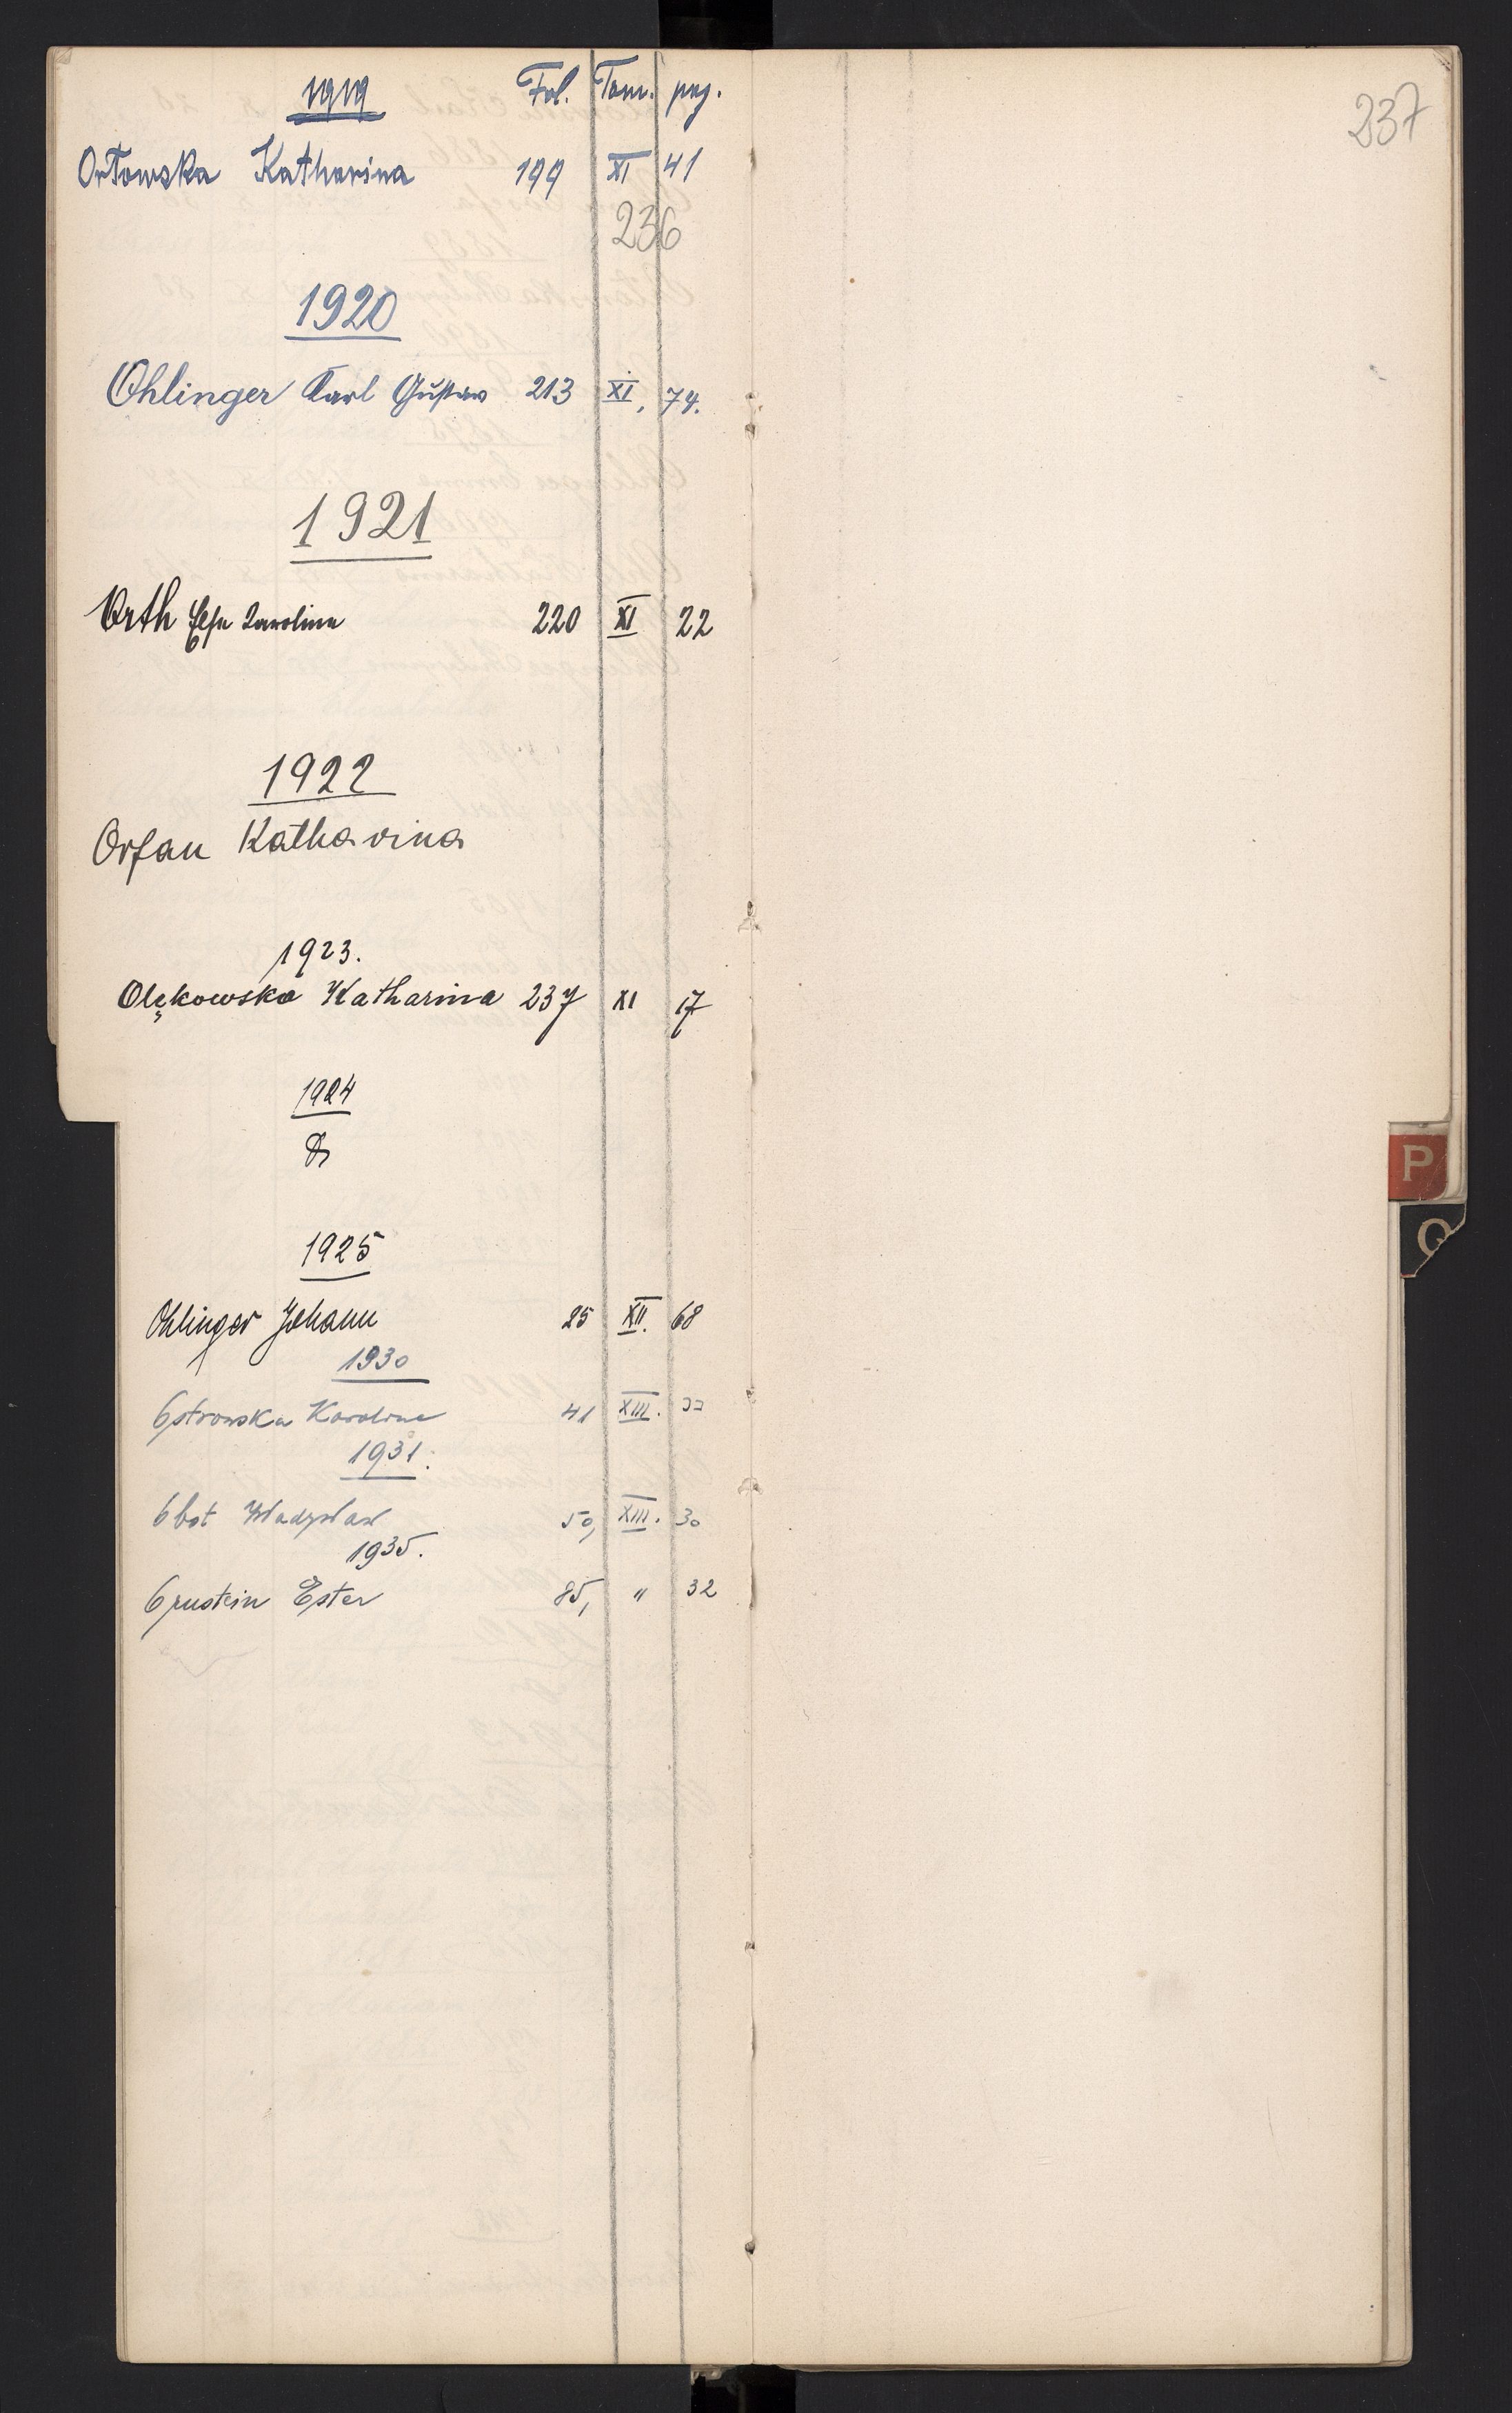 1919 Fol. Tom. pag.
Orłowska Katharina 199 XI 41
236
1920
Ohlinger Karl Gustav 213 XI, 74.
1921
Orth Elsa Karoline 220 XI 22
1922
Orfan Katharina
1923.
Olękowska Katharina 237 XI 17
1924
1925
Ohlinger Johann 25 XII. 68
1930
Ostrowska Karolina 41 XIII.
1931.
Obot Władysław 50, XIII. 30
1935.
Ester 85, " 32
237
P
Q